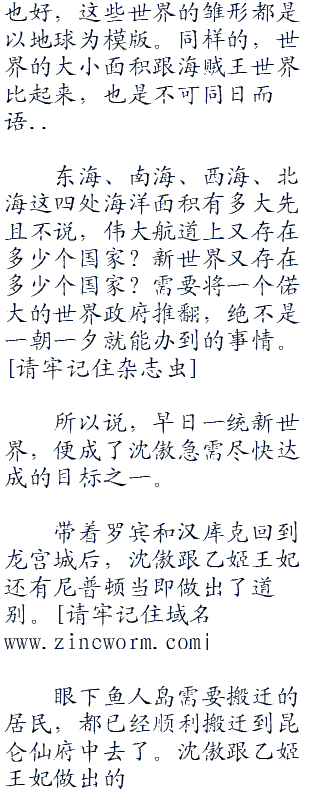 也好，这些世界的雏形都是
以地球为模版。同样的，世
界的大小面积跟海贼王世界
比起来，也是不可同日而
语..
东海、南海、西海、北
海这四处海洋面积有多大先
且不说，伟大航道上又存在
多少个国家？新世界又存在
多少个国家？需要将一个偌
大的世界政府推翻，绝不是
一朝一夕就能办到的事情。
[请牢记住杂志虫]
所以说，早日一统新世
界，便成了沈傲急需尽快达
成的目标之一。
带着罗宾和汉库克回到
龙宫城后，沈傲跟乙姬王妃
还有尼普顿当即做出了道
别。[请牢记住域名
www.zincworm.com¡
眼下鱼人岛需要搬迁的
居民，都已经顺利搬迁到昆
仑仙府中去了。沈傲跟乙姬
王妃做出的